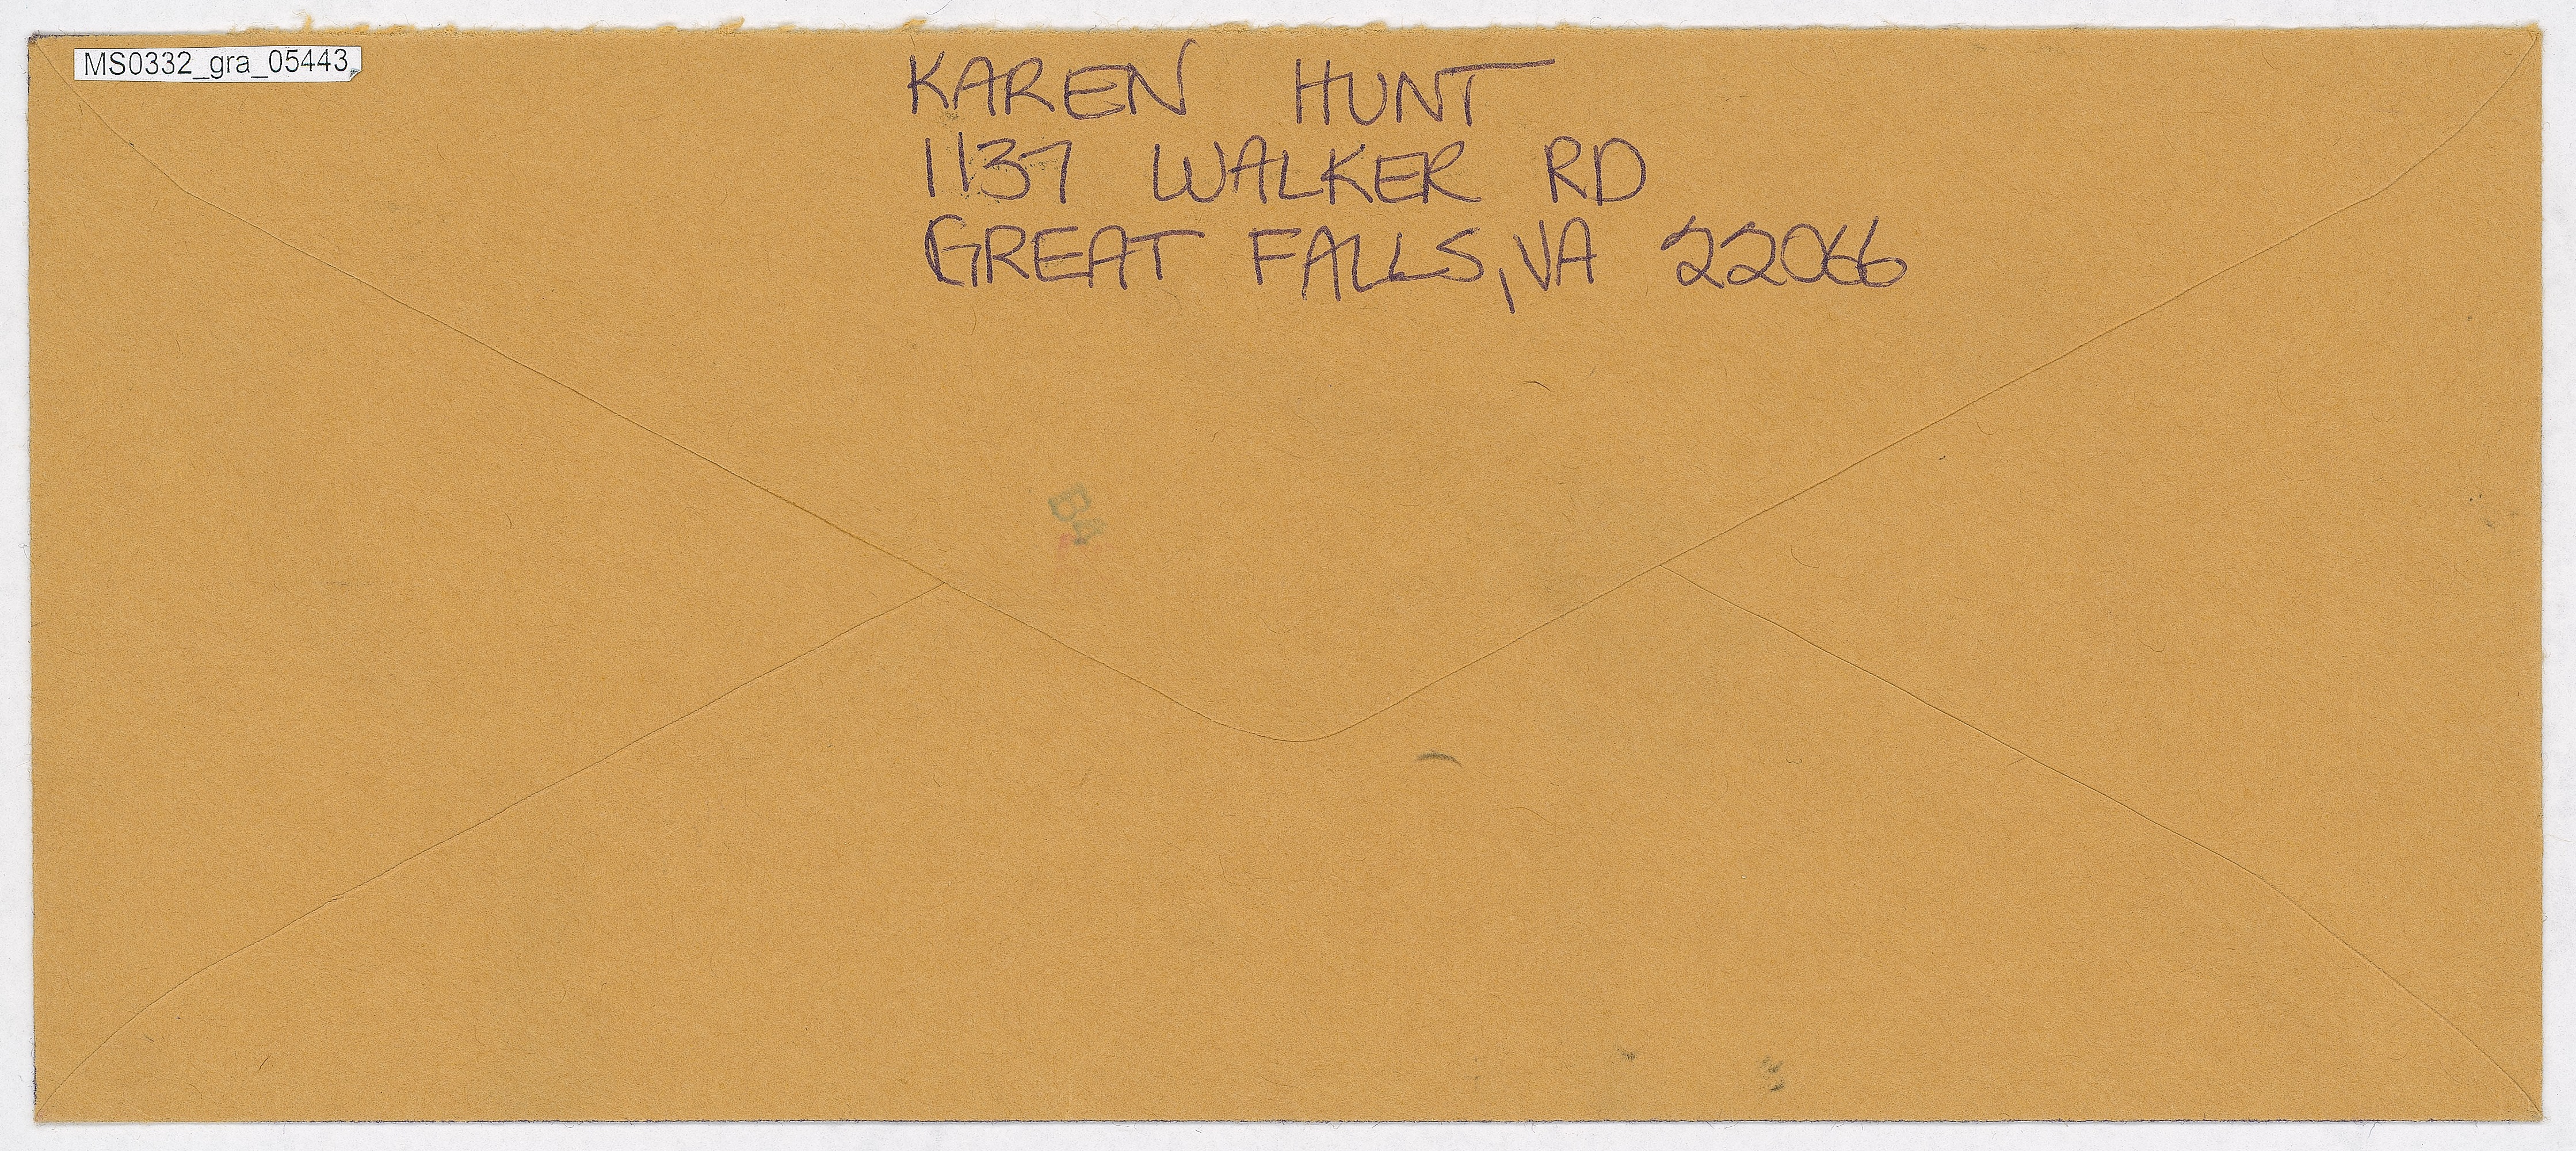 MS0332_gra_05443
KAREN HUNT
1137 WALKER RD
GREAT FALLS, VA 22066
B4